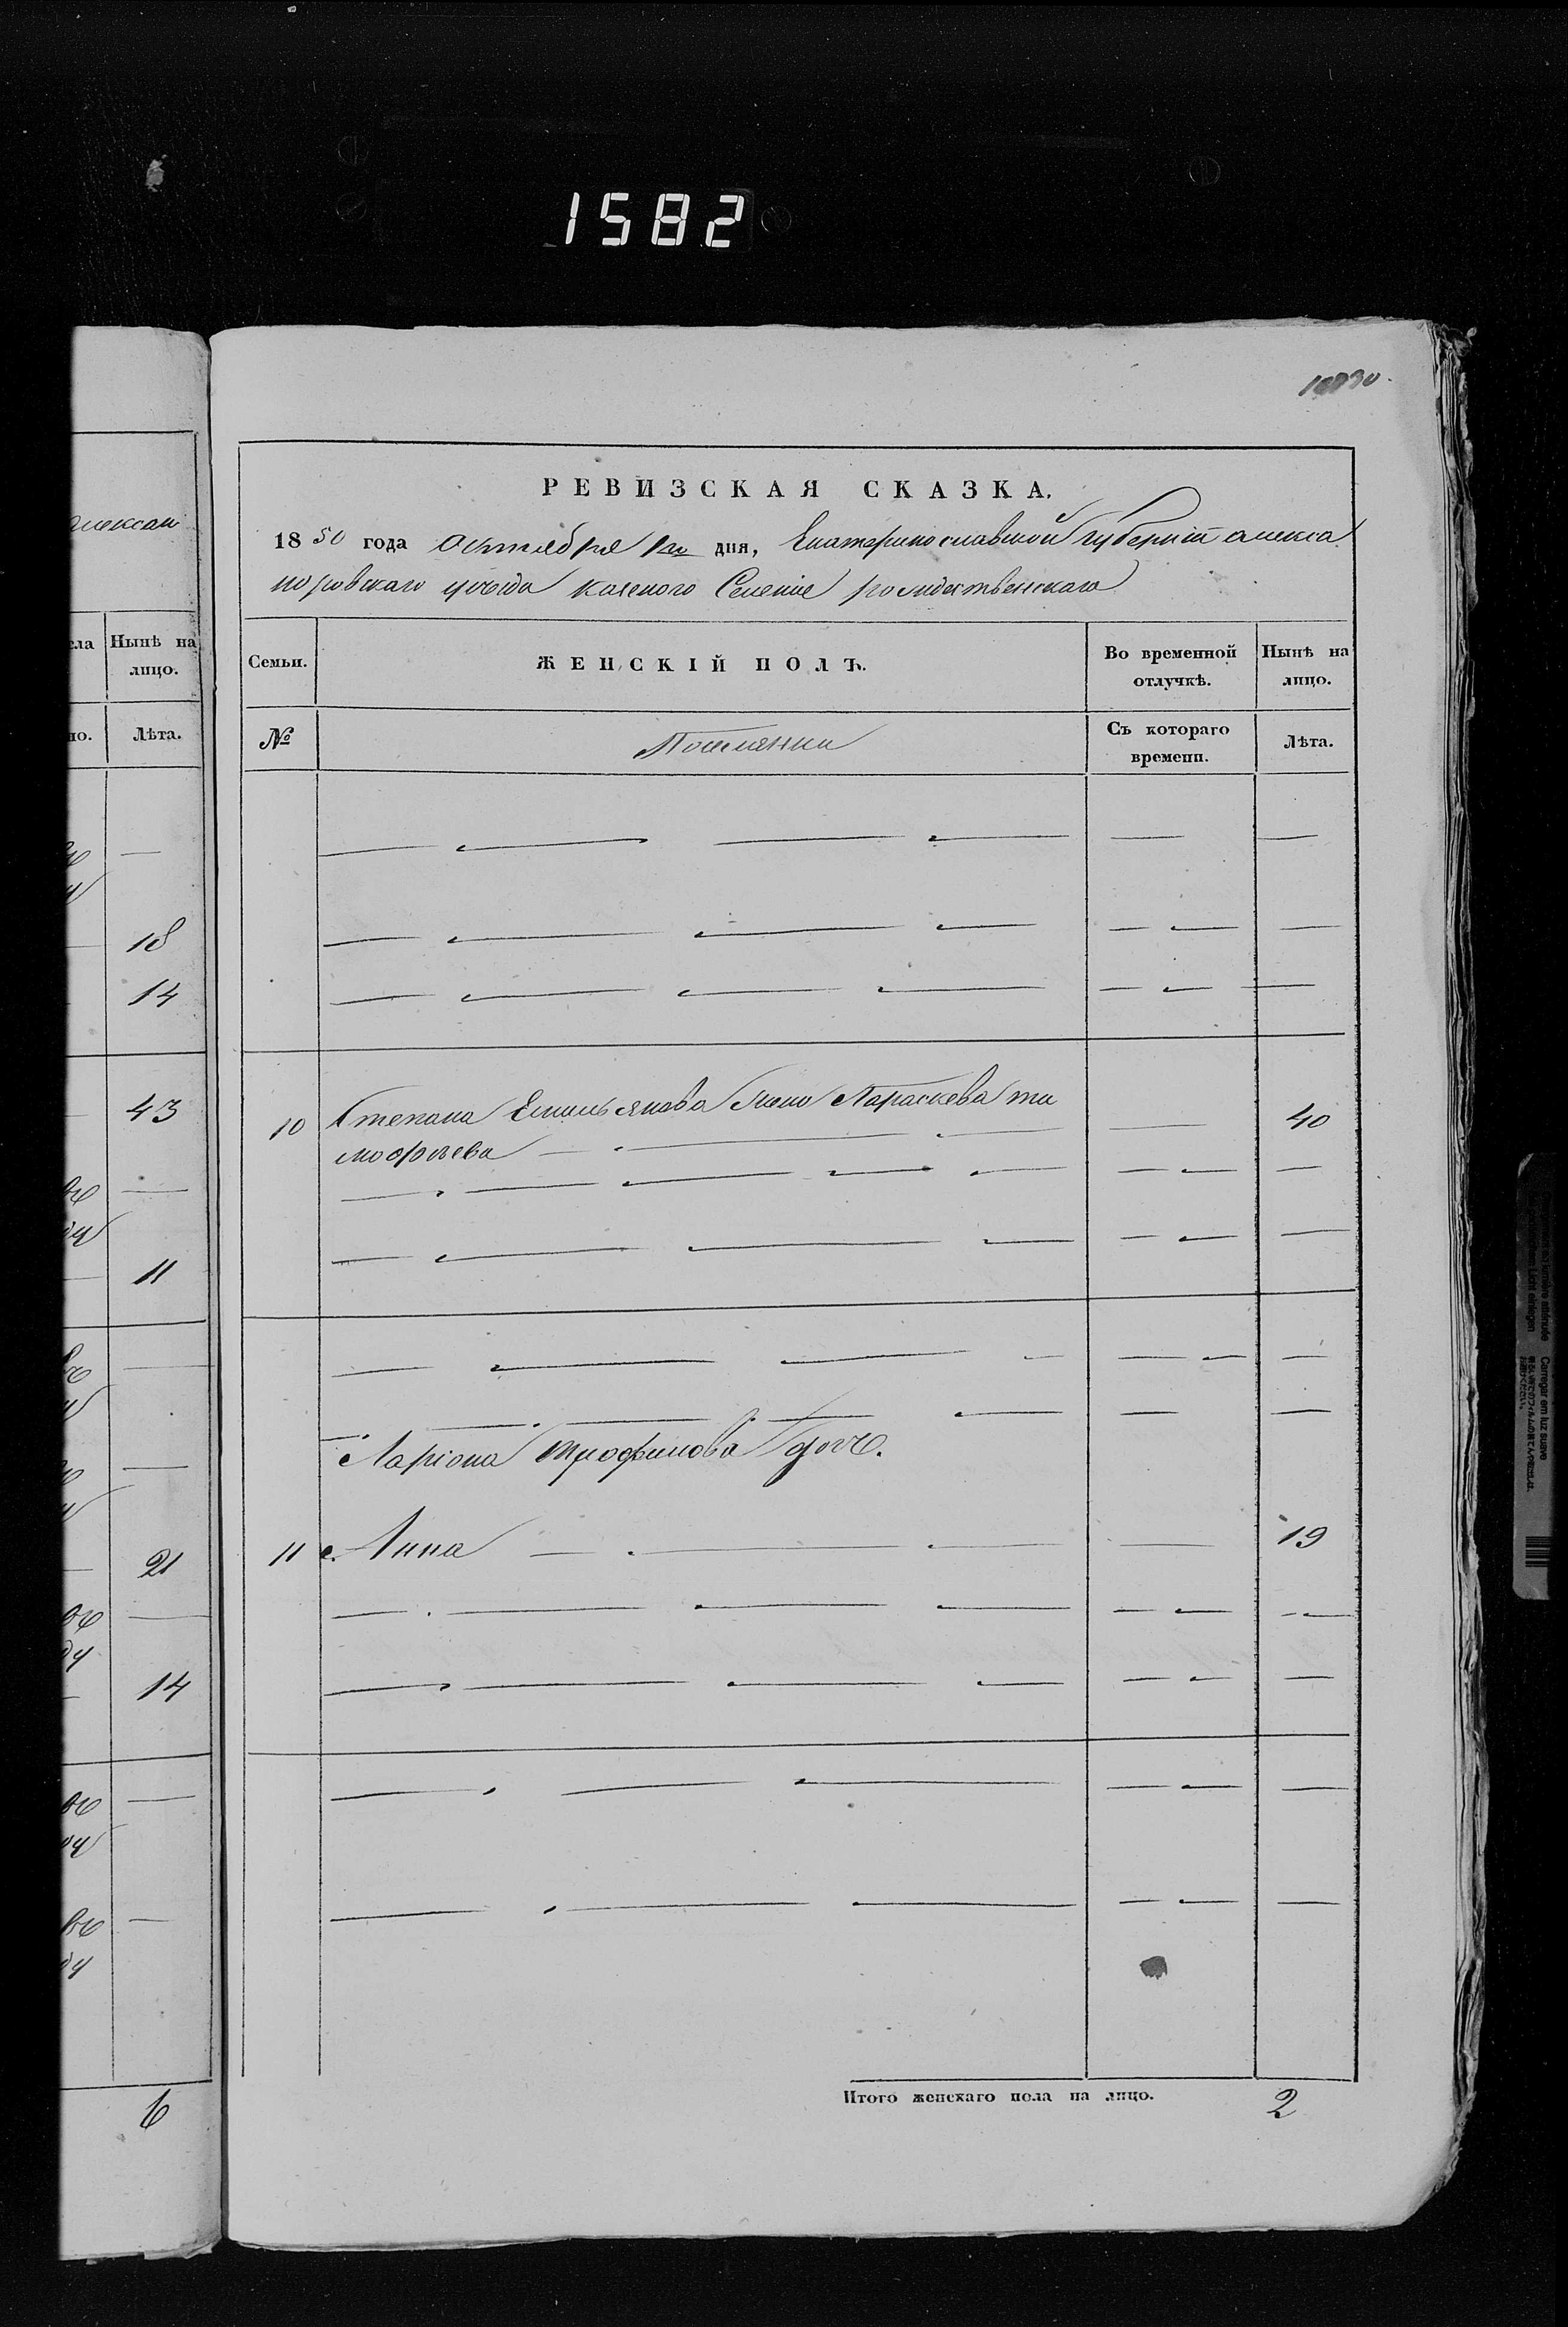 1582
РЕВИЗСКАЯ СКАЗКА.
1850 года Октября 1го дня, Екатеринославской Губерніи алекса
ндровскаго уѣзда казеного Селеніе рождественскаго
алексан
Нынѣ на лицо.
Лѣта.
18
14
43
11
21
14
6
Семьи. ЖЕНСКІЙ ПОЛЪ. Во временной отлучкѣ. Нынѣ на лицо.
№ Съ котораго времени. Лѣта.
10 Степана Емильянова жена Параскева ти 40
мофѣева
Ларіона трофимова дочь.
11 Анна 19
Итого женскаго пола на лицо. 2